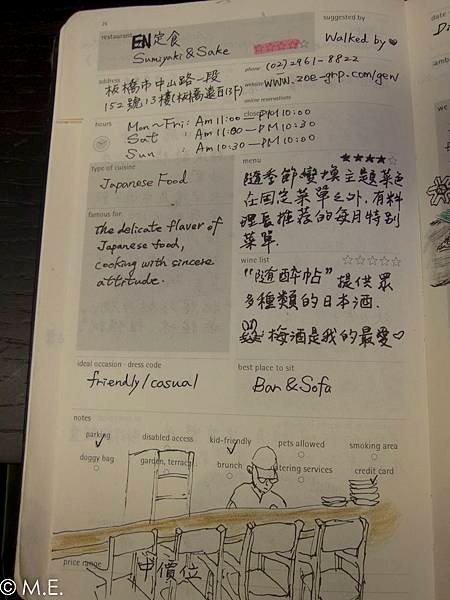 restaurant EN定食
Sumiyaki & Sake
suggested by
Walked by
address
板橋市中山路一段
152號13樓(板橋遠百13F)
phone (02)2961-8822
website www.zoe-grp.com/gen/
online reservations
hours
closed
Mon~Fri: Am 11:00 — PM 10:00
Sat : Am 11:00 — PM 10:30
Sun : Am 10:30 — PM 10:00
type of cuisine
Japanese Food
famous for
The delicate flavor of
Japanese food,
cooking with sincere
attitude.
menu
隨季節變換主題菜色
在固定菜單之外,有料
理長推荐的每月特別
菜單.
wine list
"隨醉帖"提供眾
多種類的日本酒.
梅酒是我的最愛
ideal occasion - dress code
friendly/casual
best place to sit
Bar & Sofa
notes
parking
disabled access
kid-friendly
pets allowed
smoking area
doggy bag
garden, terrace
brunch
catering services
credit card
price range
中價位
© M.E.